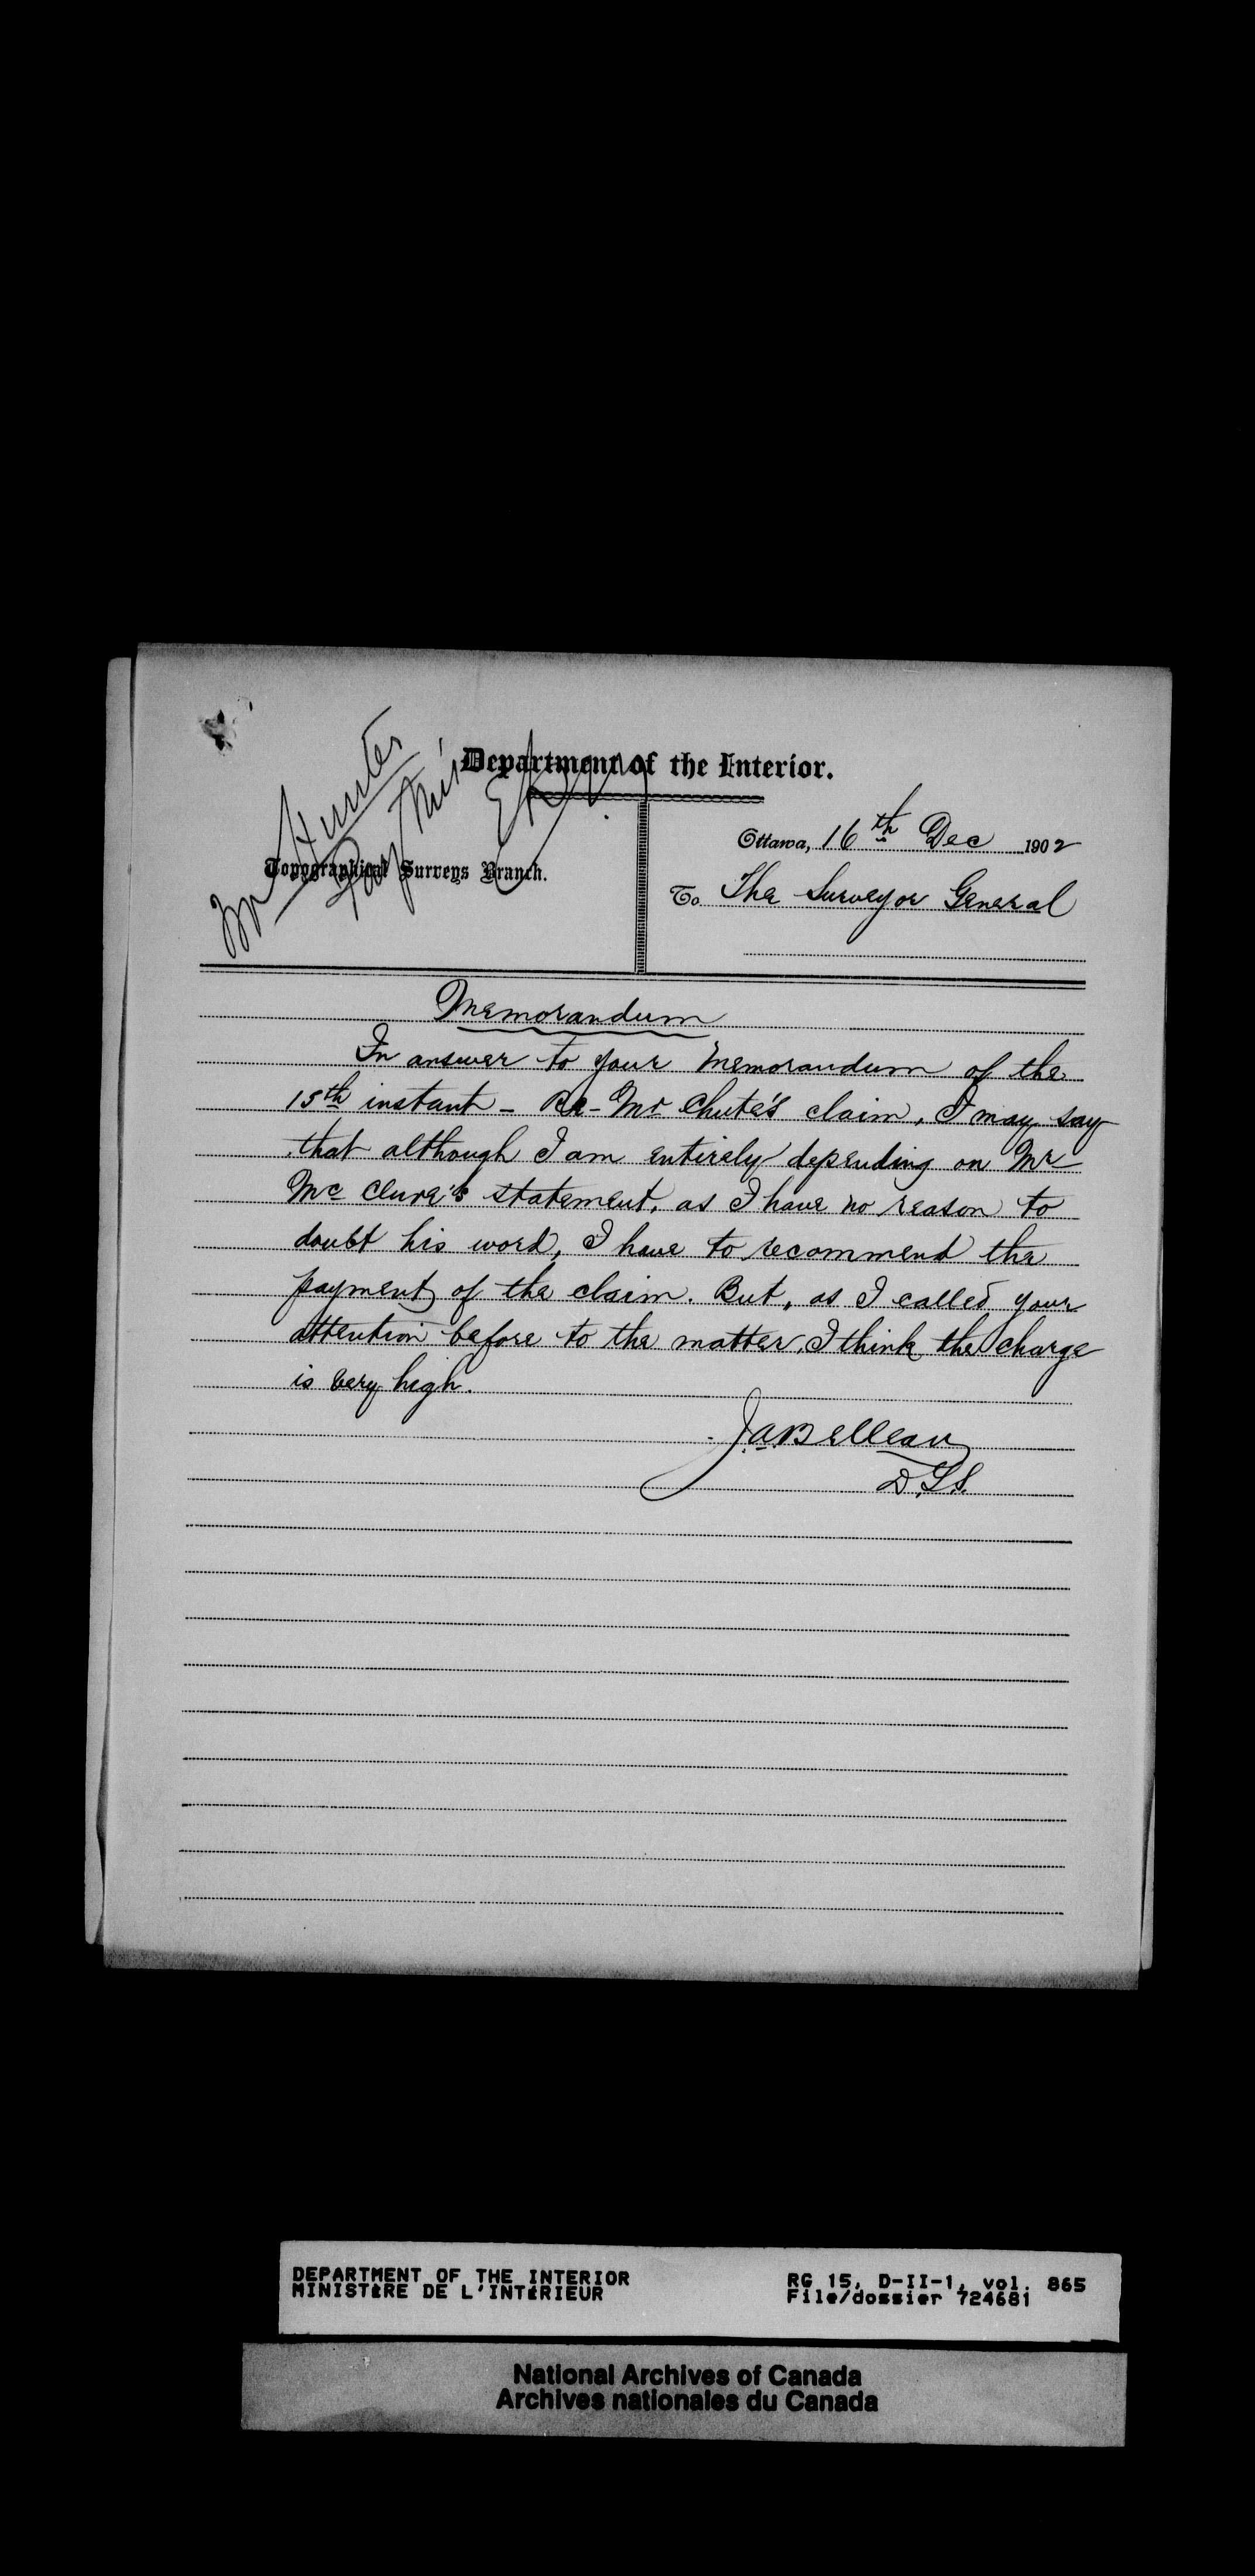 Department of the Interior.
Mr Hunter
Pay this
Topographical Surveys Branch.
Ottawa, 16th Dec 1902
To The Surveyor General
Memorandum
In answer to your Memorandum of the
15th instant - Re - Mr Chute's claim, I may say
that although I am entirely depending on Mr
Mc Clure's statement, as I have no reason to
doubt his word, I have to recommend the
payment of the claim. But, as I called your
attention before to the matter, I think the charge
is very high.
J.A. Belleau
D.L.S.
DEPARTMENT OF THE INTERIOR
MINISTÈRE DE L'INTÉRIEUR
RG 15, D-II-1, vol. 865
File/dossier 724681
National Archives of Canada
Archives nationales du Canada